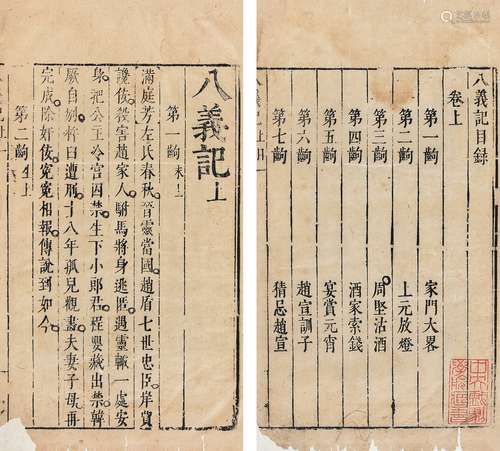 八義記目錄
卷上
第一齣 家門大畧
第二齣 上元放燈
第三齣 周堅沽酒
第四齣 酒家索錢
第五齣 宴賞元宵
第六齣 趙宣訓子
第七齣 猜忌趙宣
八義記上
第一齣 末上
滿庭芳左氏春秋。晉靈當國。趙盾七世忠臣。岸賈
讒佞。殺害趙家人。駙馬將身逃匿。遇靈輒一處安
身。把公主冷宮囚禁。生下小郎君。程嬰藏出禁。韓
厥自刎。杵臼遭刑。十八年孤兒觀畫。夫妻子母再
完成。除奸佞。寃寃相報。傳說到如今。
第二齣 生上